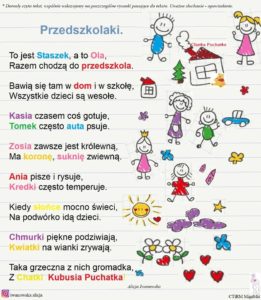 * Dorosły czyta tekst, wspólnie wskazujemy na poszczególne rysunki pasujące do tekstu. Uważne słuchanie - opowiadanie.
Przedszkolaki.
Chatka Puchatka
To jest Staszek, a to Ola,
Razem chodzą do przedszkola.
Bawią się tam w dom i w szkołę,
Wszystkie dzieci są wesołe.
Kasia czasem coś gotuje,
Tomek często auta psuje.
Zosia zawsze jest królewną,
Ma koronę, suknię zwiewną.
Ania pisze i rysuje,
Kredki często temperuje.
Kiedy słońce mocno świeci,
Na podwórko idą dzieci.
Chmurki pięknie podziwiają,
Kwiatki na wianki zrywają.
Taka grzeczna z nich gromadka,
Z Chatki Kubusia Puchatka!
Alicja Iwanowska
iwanowska.alicja